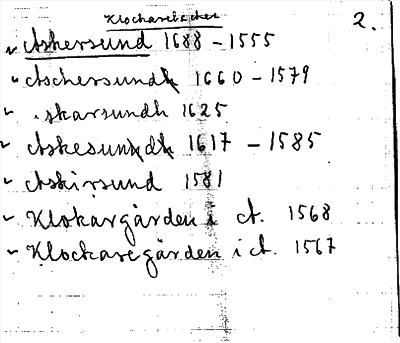 Klockarebacken 2.
" Askersund 1688 - 1555
" Aschersundh 1660 - 1579
" .skarsundh 1625
" Askesundh 1617 - 1585
" Askirsund 1581
" Klokargården i A. 1568
" Klockaregården i A. 1567